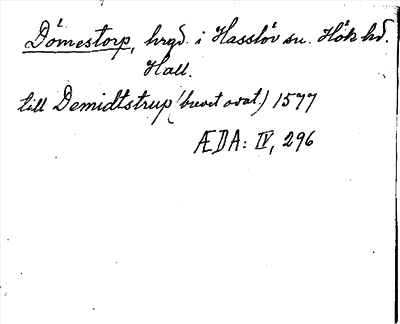 Dömestorp, hrgd. i Hasslöv sn. Hök hd.
Hall.
till Demidtstrup (brevit ovat.) 1577
ÆDA: IV, 296